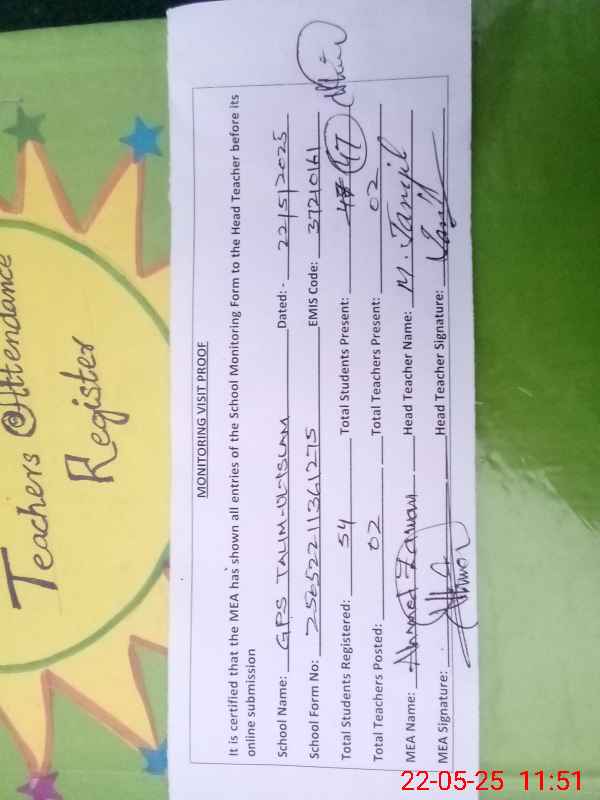 Teachers Attendance
Register
MONITORING VISIT PROOF
It is certified that the MEA has shown all entries of the School Monitoring Form to the Head Teacher before its
online submission
School Name: GPS TALIM-UL-ISLAM Dated: - 22/5/2025
School Form No: EMIS Code: 37210161
Total Students Registered: 54 Total Students Present: 47
Total Teachers Posted: 02 Total Teachers Present: 02
MEA Name: Ahmed Head Teacher Name: M. Jamil
MEA Signature: Head Teacher Signature:
22-05-25 11:51